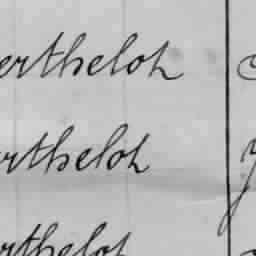 erthelot
rthelot
rthelot